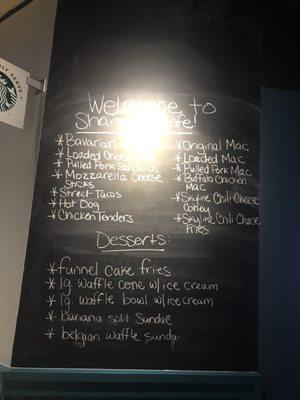 Welcome to
Cafe!
* Bavarian
* Loaded Cheese
* Pulled Pork Sandwich
* Mozzarella Cheese
Sticks
* Street Tacos
* Hot Dog
* Chicken Tenders
* Original Mac
* Loaded Mac
* Pulled Pork Mac
* Buffalo Chicken
Mac
* Skyline Chili Cheese
Coney
* Skyline Chili Cheese
Fries
Desserts:
* funnel cake fries
* lg. waffle cone w/ice cream
* lg. waffle bowl w/ice cream
* banana split Sundae
* belgian waffle sundae